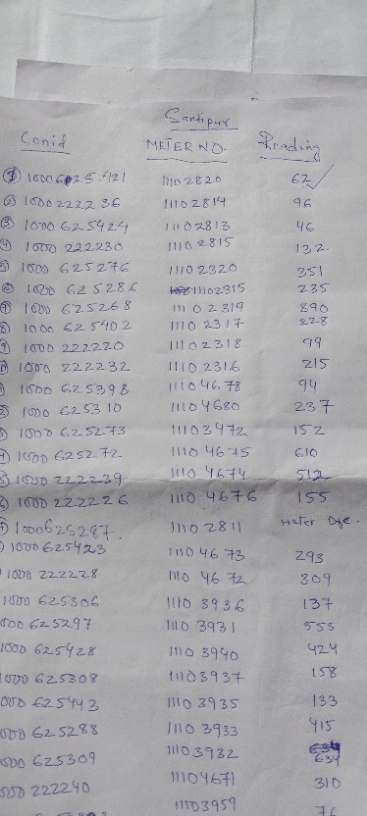 Santipur
Conid METER NO. Reading
① 1000625421 11102820 62
② 1000222236 11102814 96
③ 1000625424 11102813 46
④ 1000222230 11102815 132
⑤ 1000625276 11102320 351
⑥ 1000625286 11102315 235
⑦ 1000625268 11102319 890
⑧ 1000625402 11102317 228
1000222220 11102318 99
1000222232 11102316 215
1000625398 11104678 94
1000625310 11104680 237
1000625273 11103472 152
1000625272 11104675 610
1000222239 11104674 512
1000222226 11104676 155
1000625287 11102811 Meter Dfe.
1000625423 11104673 293
1000222228 11104672 309
1000625306 11103936 137
000625297 11103931 555
1000625428 11103940 424
1000625308 11103937 158
000625443 11103935 133
000625288 11103933 415
000625309 11103932 634
000222240 11104671 310
11103959 76